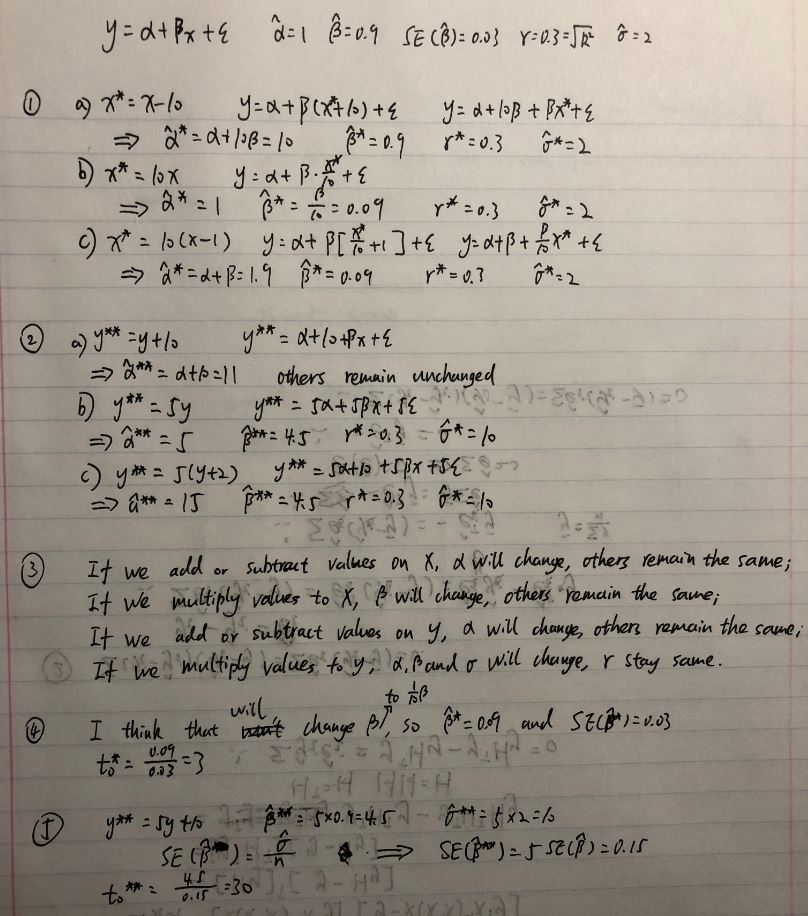 y = α + βx + ε   α̂ = 1   β̂ = 0.9   SE(β̂) = 0.03   r = 0.3 = √R²   σ̂ = 2
① a) x* = x - 10   y = α + β(x* + 10) + ε   y = α + 10β + βx* + ε
⇒ α̂* = α + 10β = 10   β̂* = 0.9   r* = 0.3   σ̂* = 2
b) x* = 10x   y = α + β · x*/10 + ε
⇒ α̂* = 1   β̂* = β/10 = 0.09   r* = 0.3   σ̂* = 2
c) x* = 10(x - 1)   y = α + β[x*/10 + 1] + ε   y = α + β + β/10 x* + ε
⇒ α̂* = α + β = 1.9   β̂* = 0.09   r* = 0.3   σ̂* = 2
② a) y** = y + 10   y** = α + 10 + βx + ε
⇒ α̂** = α + 10 = 11   others remain unchanged
b) y** = 5y   y** = 5α + 5βx + 5ε
⇒ α̂** = 5   β̂** = 4.5   r* = 0.3   σ̂* = 10
c) y** = 5(y + 2)   y** = 5α + 10 + 5βx + 5ε
⇒ α̂** = 15   β̂** = 4.5   r* = 0.3   σ̂* = 10
③ If we add or subtract values on X, α will change, others remain the same;
If we multiply values to X, β will change, others remain the same;
If we add or subtract values on y, α will change, others remain the same;
If we multiply values to y, α, β and σ will change, r stay same.
④ I think that will change β to 1/10 β, so β̂* = 0.09 and SE(β̂*) = 0.03
t₀* = 0.09/0.03 = 3
⑤ y** = 5y + 10   β̂** = 5×0.9 = 4.5   σ̂** = 5×2 = 10
SE(β̂**) = σ̂/n   ⇒ SE(β̂**) = 5 SE(β̂) = 0.15
t₀** = 4.5/0.15 = 30